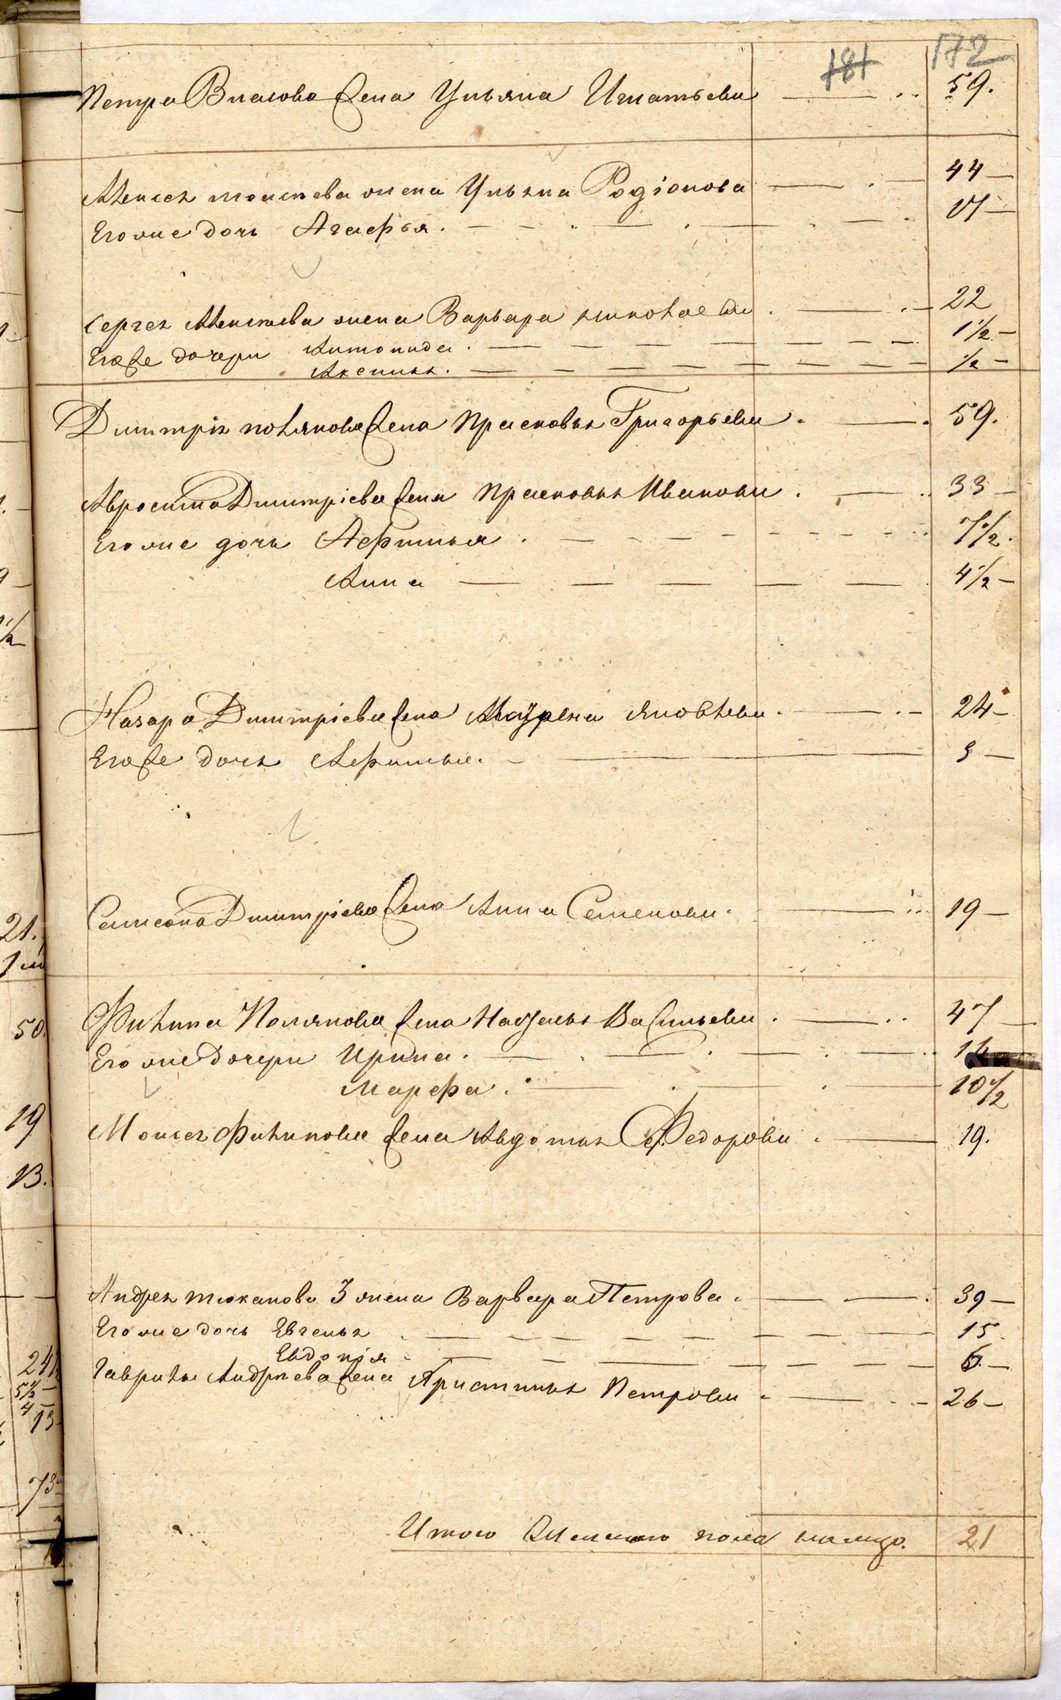 181 172
Петра Власова жена Ульяна Игнатьева 59.
Алексея Моисеева жена Ульяна Родіонова 44
Его же дочь Агафья. 17
Сергея Алексеева жена Варвара Николаева 22
Егоже дочери Антонида 1 1/2
Аксинья. 1/2
Дмитрія Полякова жена Прасковья Григорьева. 59.
Дмитріева жена Прасковья Иванова. 33
Его же дочь Афимья. 7 1/2.
Анна 4 1/2
Назара Дмитріева жена Маурена Яковлева. 24
Егоже дочь Афимья. 3
Самсона Дмитріева жена Анна Семенова. 19
Филипа Полякова жена Наталья Васильева. 47
Его же дочери Ирина. 14
Марфа. 10 1/2
Моисея Филипова жена Авдотья Федорова. 19.
Андрея 3 жена Варвара Петрова. 39
Его же дочь Евгенья 15
Евдокія 6
Гаврилы Андреева жена Христинья Петрова 26
Итого женского пола налицо. 21
21.
50.
19
13.